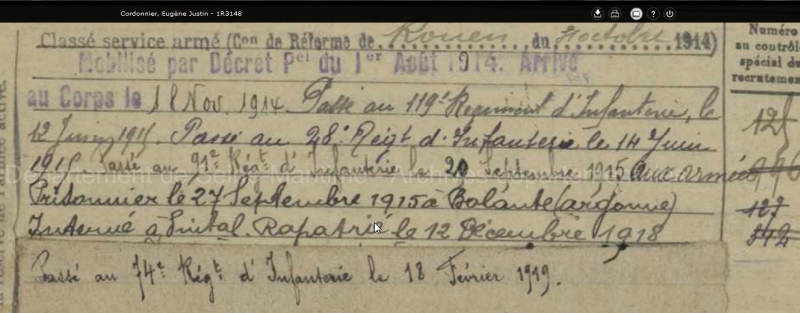 Cordonnier, Eugène Justin - 1R3148
Classé service armé (Con de Réforme de Rouen du 7 octobre 1914)
Mobilisé par Décret Pel du 1er Août 1914. Arrivé
au Corps le 18 Nov. 1914. Passé au 119e Régiment d'Infanterie, le
12 Juin 1915. Passé au 28e Régt d'Infanterie le 14 Juin
1915 Passé au 91e Régt d'Infanterie le 20 Septembre 1915 aux armées
Prisonnier le 27 Septembre 1915 à Bolante (argonne)
Interné à Rapatrié le 12 Décembre 1918
Passé au 74e Régt d'Infanterie le 18 Février 1919.
Numéro
au contrôle
spécial du
recrutement
127